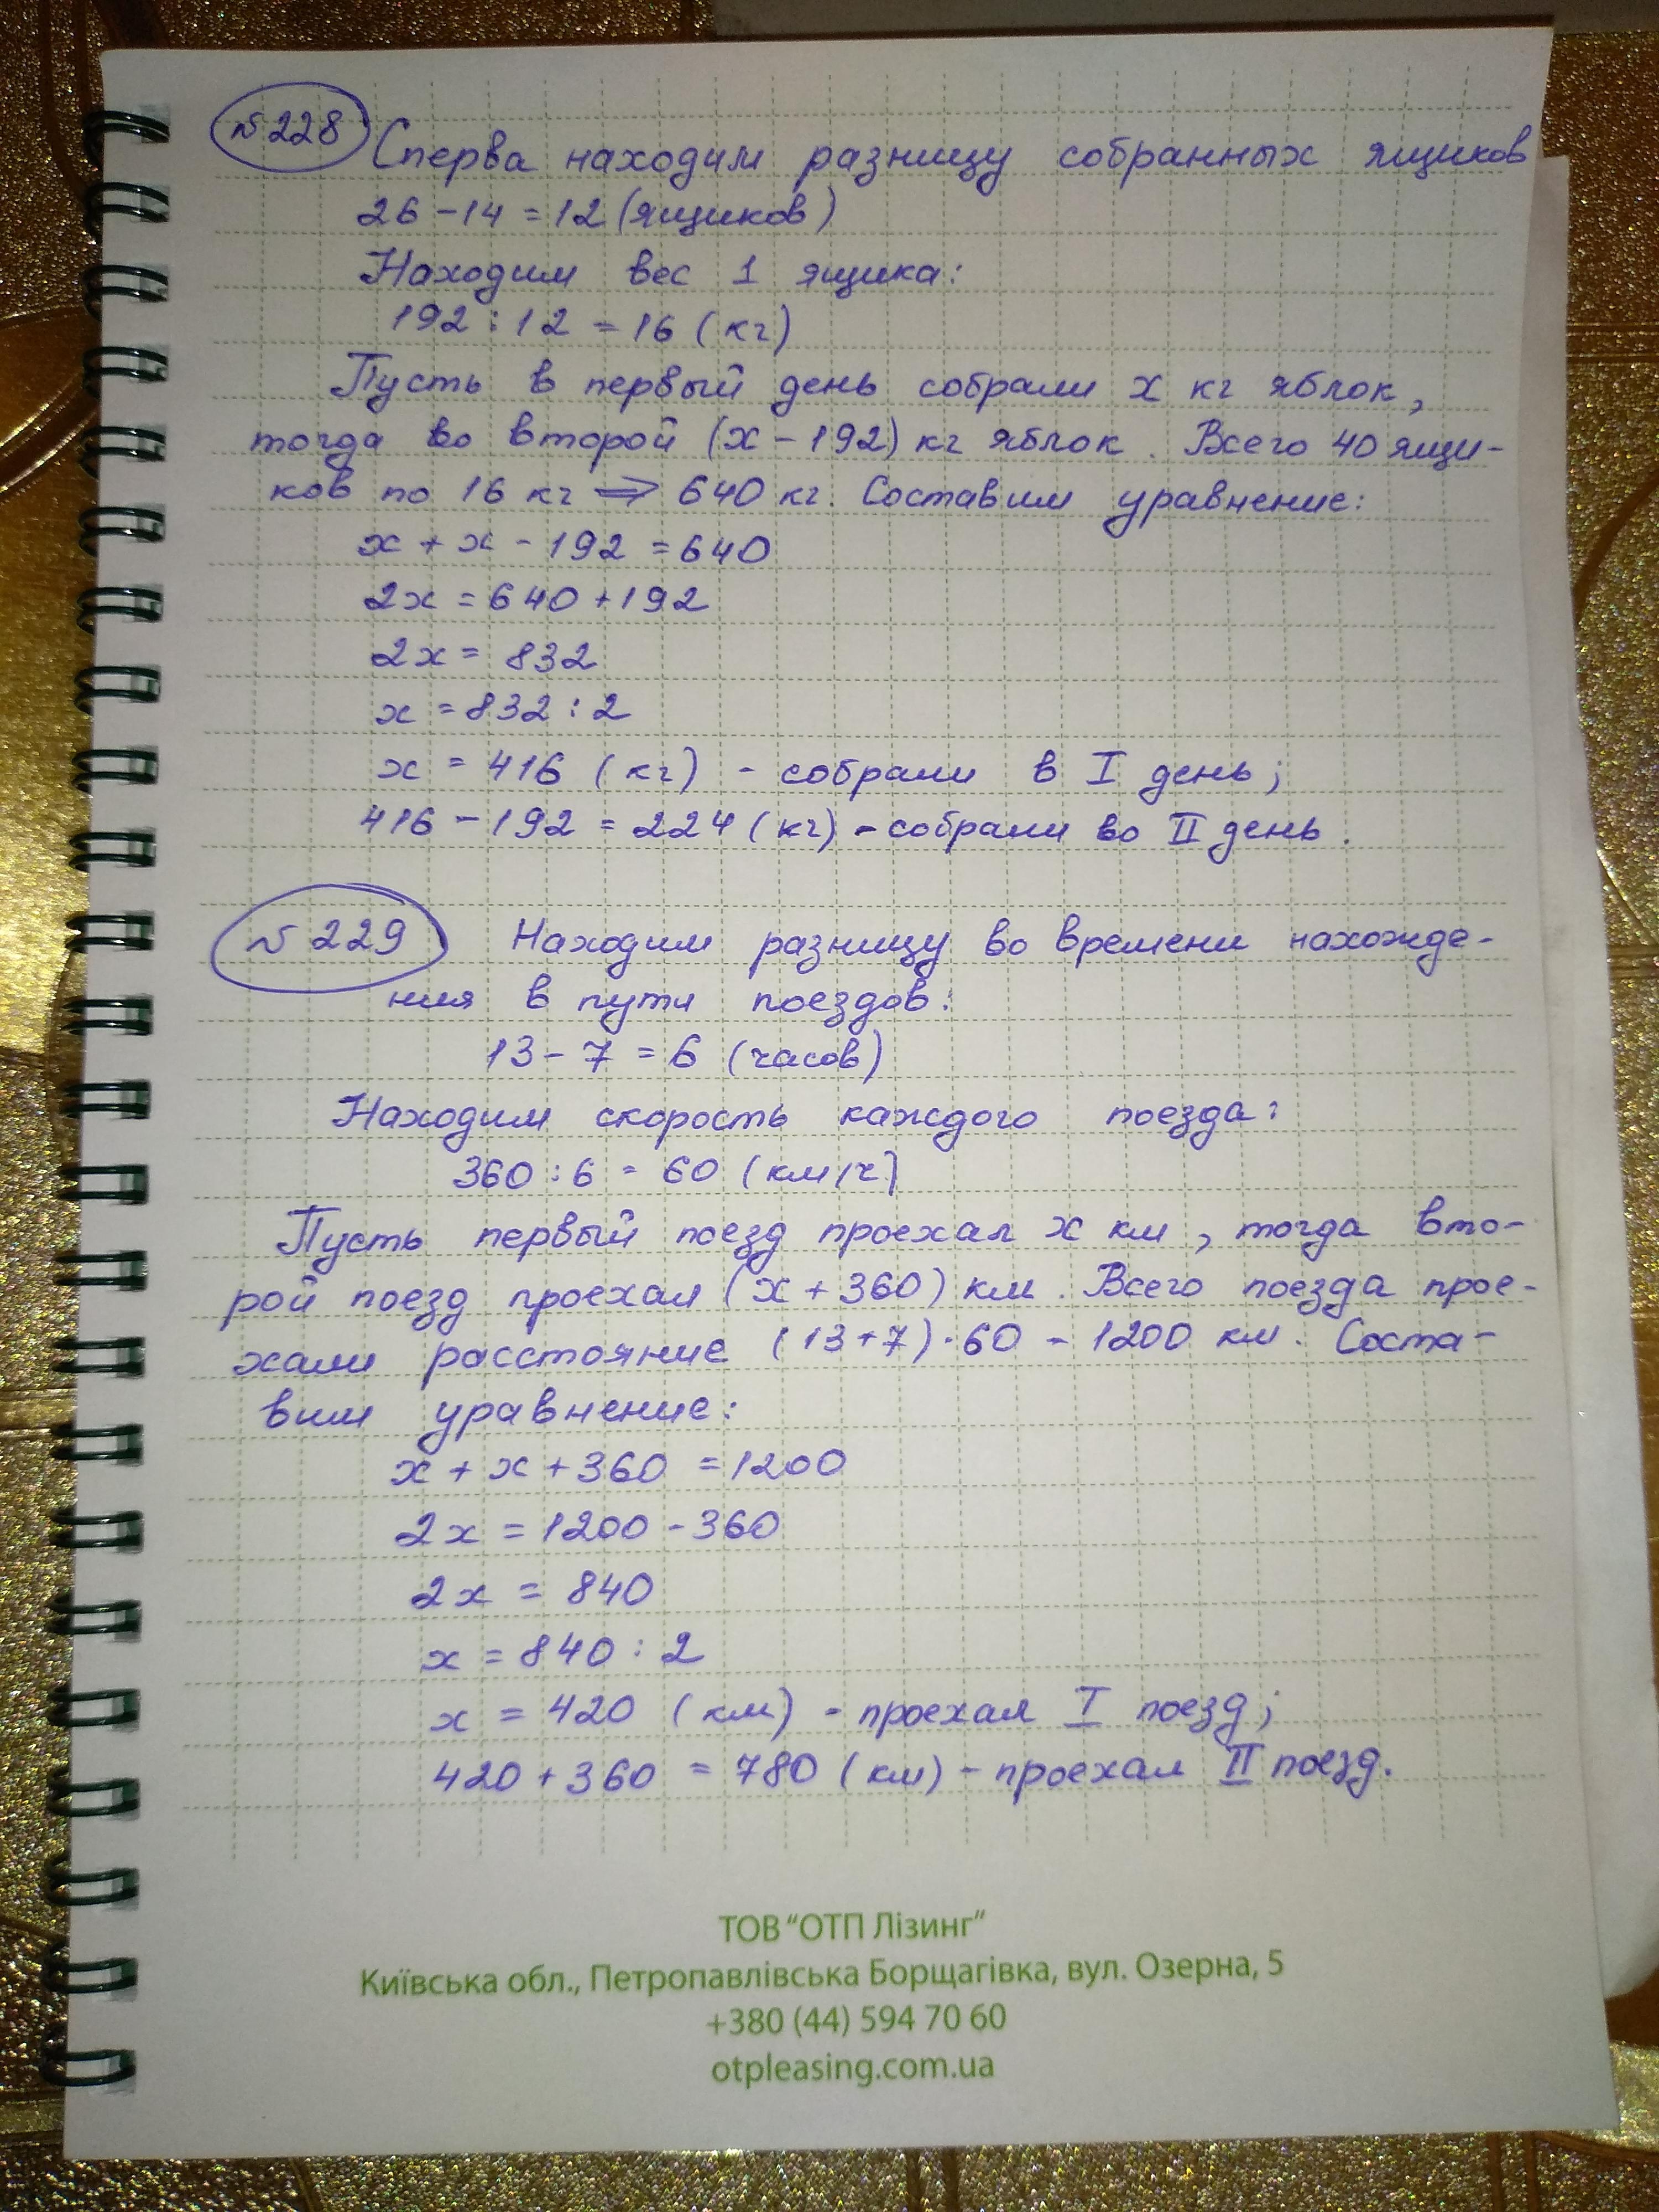 №228 Сперва находим разницу собранных ящиков
26 - 14 = 12 (ящиков)
Находим вес 1 ящика:
192 : 12 = 16 (кг)
Пусть в первый день собрали x кг яблок,
тогда во второй (x - 192) кг яблок. Всего 40 ящи-
ков по 16 кг ⇒ 640 кг. Составим уравнение:
x + x - 192 = 640
2x = 640 + 192
2x = 832
x = 832 : 2
x = 416 (кг) - собрали в I день;
416 - 192 = 224 (кг) - собрали во II день.
№229 Находим разницу во времени нахожде-
ния в пути поездов:
13 - 7 = 6 (часов)
Находим скорость каждого поезда:
360 : 6 = 60 (км/ч)
Пусть первый поезд проехал x км, тогда вто-
рой поезд проехал (x + 360) км. Всего поезда прое-
хали расстояние (13 + 7) · 60 = 1200 км. Соста-
вим уравнение:
x + x + 360 = 1200
2x = 1200 - 360
2x = 840
x = 840 : 2
x = 420 (км) - проехал I поезд;
420 + 360 = 780 (км) - проехал II поезд.
ТОВ "ОТП Лізинг"
Київська обл., Петропавлівська Борщагівка, вул. Озерна, 5
+380 (44) 594 70 60
otpleasing.com.ua